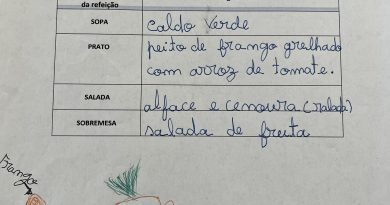 da refeição
SOPA
Caldo Verde
PRATO
peito de frango grelhado
com arroz de tomate.
SALADA
alface e cenoura (ralada)
SOBREMESA
salada de fruta
Frango